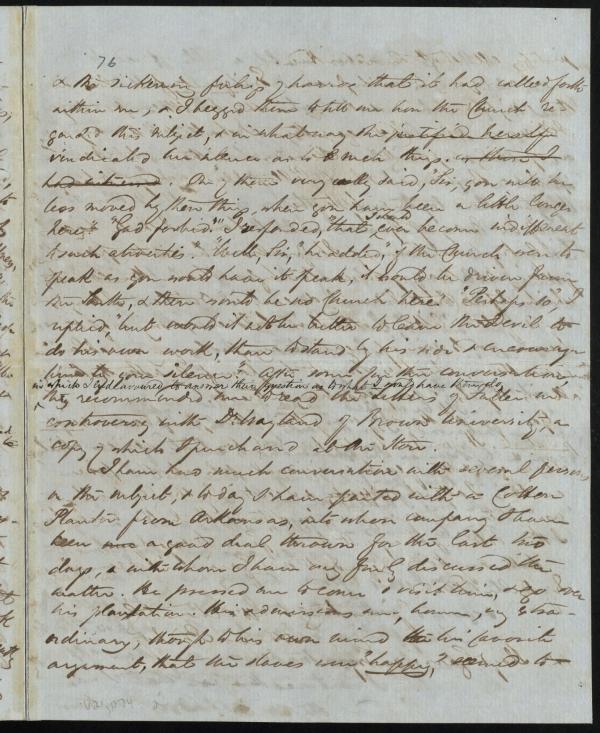 76
& the sickening feeling of horror that it had called forth
within me, & I begged them to tell me how the Church re
garded this subject, & in what way she justified herself
vindicated her silence as to such things. 
had witnessed. One of them very coolly said, Sir, you will be
less moved by these things, when you have been a little longer
here." "God forbid," I responded, "that I should ever become indifferent
to such atrocities." "Well, Sir," he added, "if the Church were to
speak as you would have it speak, it would be driven from
the South, & there would be no Church here." "Perhaps so," I
replied, "but would it not be better to leave the Devil to
do his own work, than to stand by his side & encourage
him by your silence?" After some further conversation,
in which I endeavoured to answer their question as to what I would have them do,
they recommended me to read the Letters of Fuller in
controversy with Dr. Wayland of Brown University, a
copy of which I purchased at the Store.
I have had much conversation with several persons
on this subject, & to day I have parted with a Cotton
Planter from Arkansas, into whose company I have
been a good deal thrown for the last two
days, & with whom I have very fully discussed the
matter. He pressed me to come & visit him, & go over
his plantation. His admissions were, however, very extra-
ordinary, though to his own mind his favorite
argument, that the slaves were "happy," seemed to